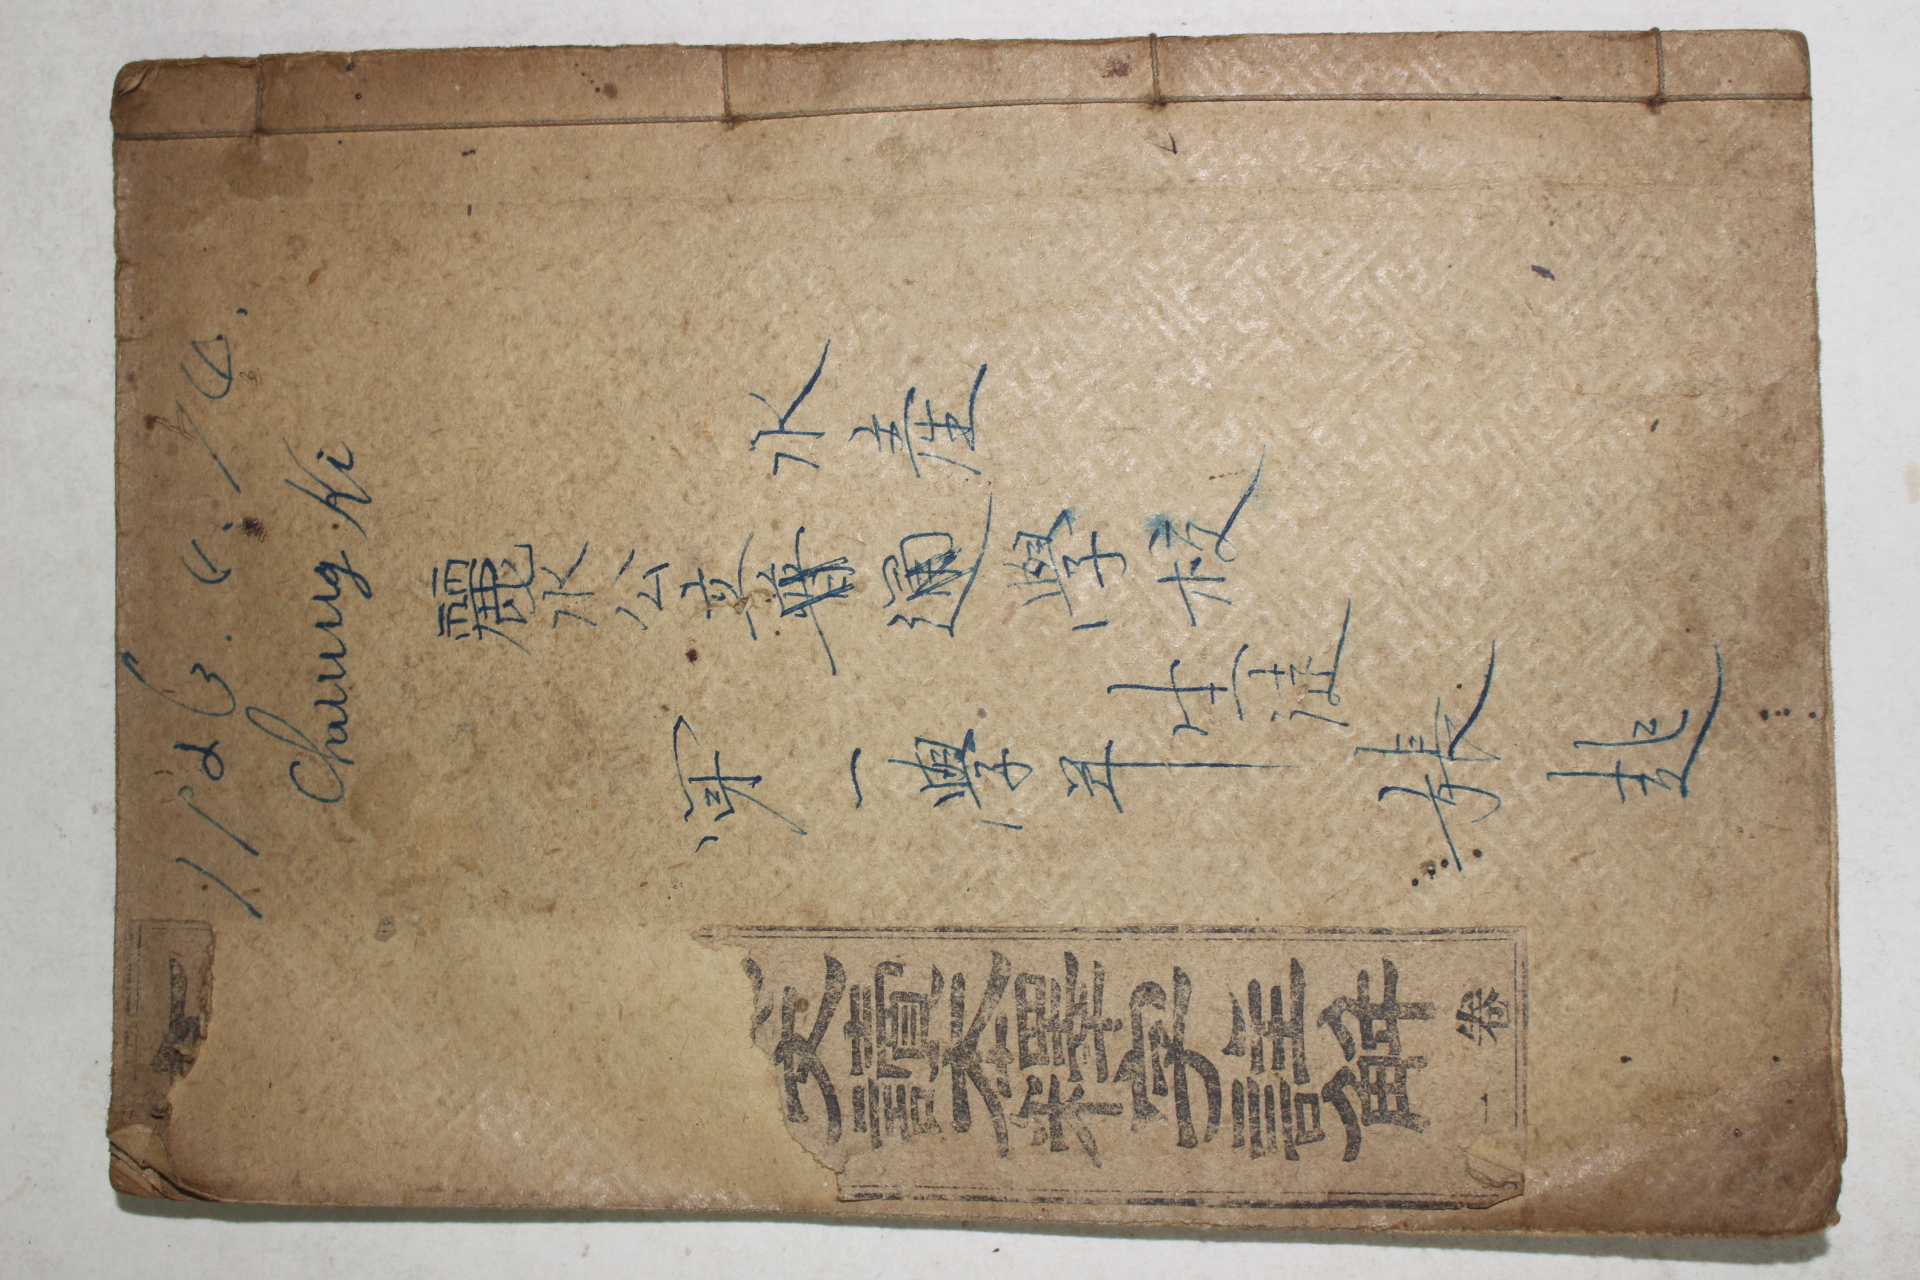 1926. 4. 14.
Chaung Ki
水產
麗水公立普通學校
第一學年
生徒
張起
文讀本釋字註解
卷一